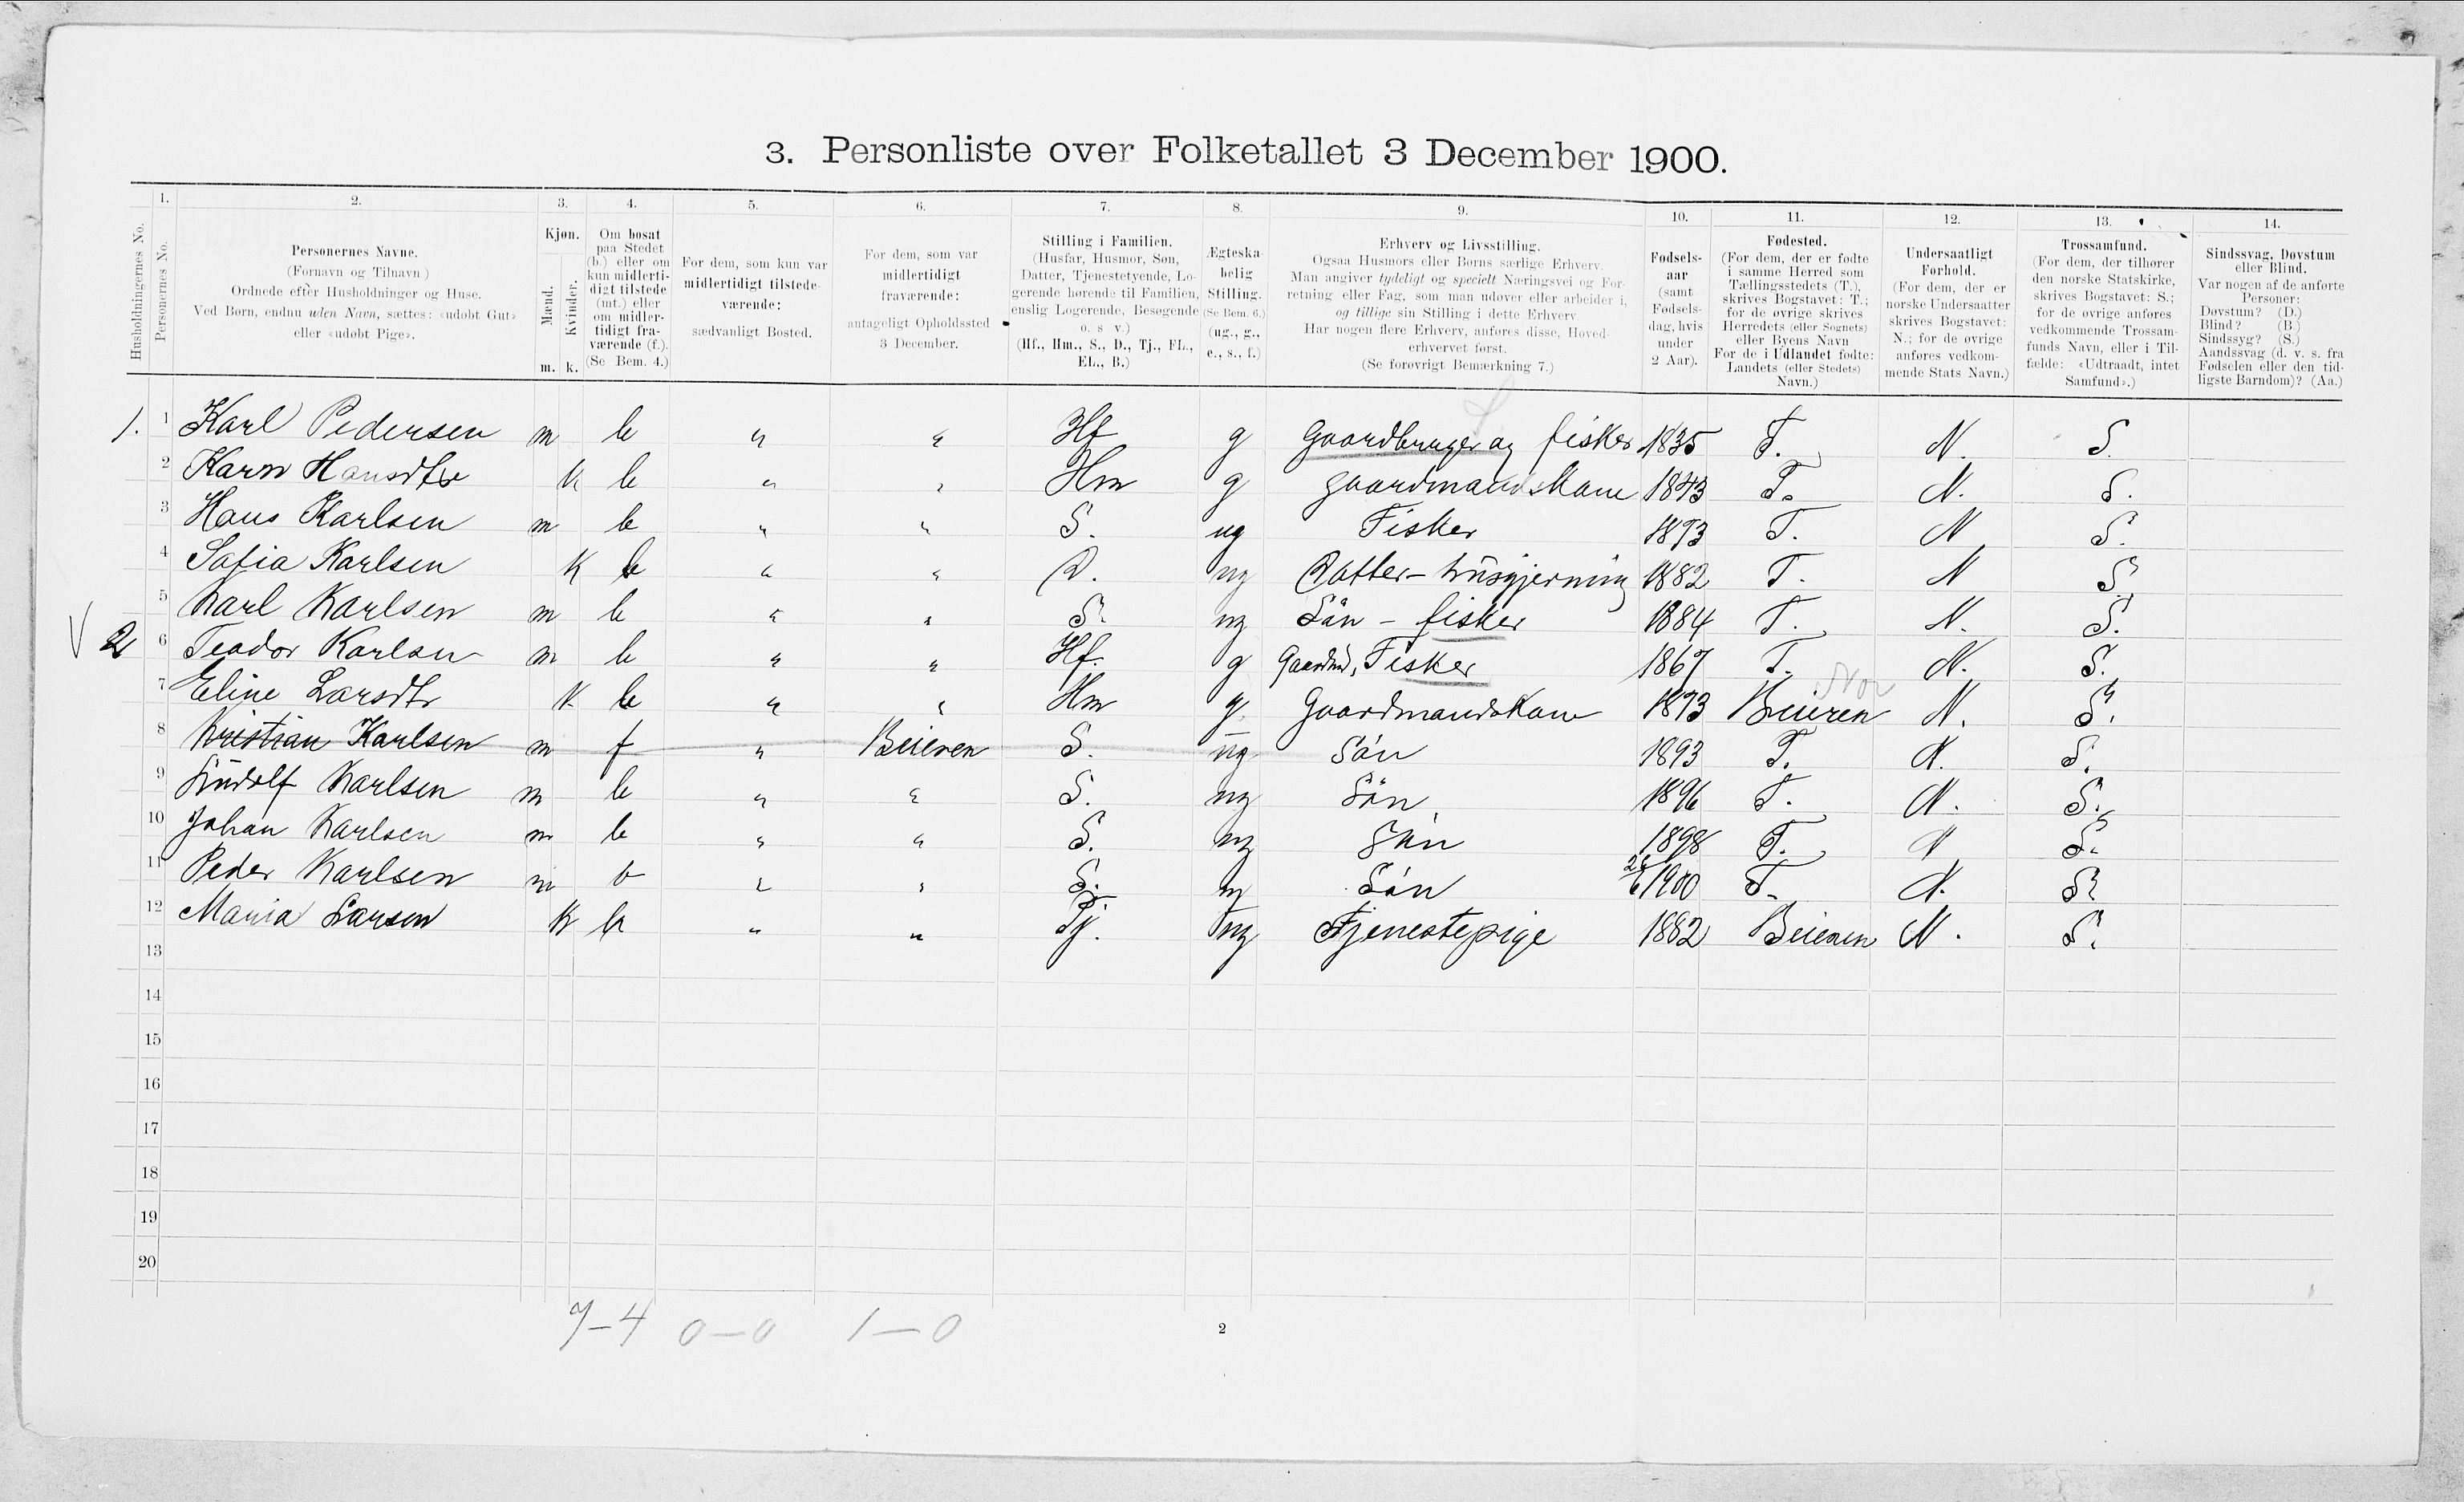 3. Personliste over Folketallet 3 December 1900.
1. 2. 3. 4. 5. 6. 7. 8. 9. 10. 11. 12. 13. 14.
Husholdningernes No.
Personernes No.
Personernes Navne.
(Fornavn og Tilnavn)
Ordnede efter Husholdninger og Huse.
Ved Børn, endnu uden Navn, sættes: «udøbt Gut»
eller «udøbt Pige».
Kjøn.
Mænd.
Kvinder.
m. k.
Om bosat
paa Stedet
(b.) eller om
kun midlerti-
digt tilstede
(mt.) eller
om midler-
tidigt fra-
værende (f.).
(Se Bem. 4.)
For dem, som kun var
midlertidigt tilstede-
værende:
sædvanligt Bosted.
For dem, som var
midlertidigt
fraværende:
antageligt Opholdssted
3 December.
Stilling i Familien.
(Husfar, Husmor, Søn,
Datter, Tjenestetyende, Lo-
gerende hørende til Familien,
enslig Logerende, Besøgende
o. s v.)
(Hf., Hm., S., D., Tj., FL.,
EL., B.)
Ægteska-
belig
Stilling.
(Se Bem. 6.)
(ug., g.,
e., s., f.)
Erhverv og Livsstilling.
Ogsaa Husmors eller Børns særlige Erhverv.
Man angiver tydeligt og specielt Næringsvei og For-
retning eller Fag, som man udøver eller arbeider i,
og tillige sin Stilling i dette Erhverv.
Har nogen flere Erhverv, anføres disse, Hoved-
erhvervet først.
(Se forøvrigt Bemærkning 7.)
Fødsels-
aar
(samt
Fødsels-
dag, hvis
under
2 Aar).
Fødested.
(For dem, der er fødte
i samme Herred som
Tællingsstedets (T.),
skrives Bogstavet: T.;
for de øvrige skrives
Herredets (eller Sognets)
eller Byens Navn
For de i Udlandet fødte:
Landets (eller Stedets)
Navn.)
Undersaatligt
Forhold.
(For dem, der er
norske Undersaatter
skrives Bogstavet:
N.; for de øvrige
anføres vedkom-
mende Stats Navn.)
Trossamfund.
(For dem, der tilhører
den norske Statskirke,
skrives Bogstavet: S.;
for de øvrige anføres
vedkommende Trossam-
funds Navn, eller i Til-
fælde: «Udtraadt, intet
Samfund».)
Sindssvag, Døvstum
eller Blind.
Var nogen af de anførte
Personer:
Døvstum? (D.)
Blind? (B.)
Sindssyg? (S.)
Aandssvag (d. v. s. fra
Fødselen eller den tid-
ligste Barndom)? (Aa.)
1. 1 Karl Pedersen m b " " Hf g Gaardbruger og fisker 1835 T. N. S.
2 Karn Hansdtr k b " " Hm g gaardmandskone 1843 T. N. S.
3 Hans Karlsen m b " " S. ug Fisker 1873 T. N S.
4 Safia Karlsen K b " " D. ug Datter - husgjerning 1882 T. N S.
5 Karl Karlsen m b " " S. ug Sön - fisker 1884 T. N. S.
2 6 Teodor Karlsen m b " " Hf. g Gaardbr, Fisker 1867 T. N. S.
7 Eline Larsdtr K b " " Hm g. Gaardmandskone 1873 Beieren N. S.
8 Kristian Karlsen m f " Beieren S. ug Sön 1893 T. N. S.
9 Ludolf Karlsen m b " " S. ug Sön 1896 T. N. S.
10 Johan Karlsen m b " " S. ug Sön 1898 T. N S.
11 Peder Karlsen m b " " S. ug Sön 1900 T. N. S.
12 Maria Larsen K b " " Tj. ug Tjenestepige 1882 Beieren N. S.
13
14
15
16
17
18
19
20
7-4 0-0 1-0
2